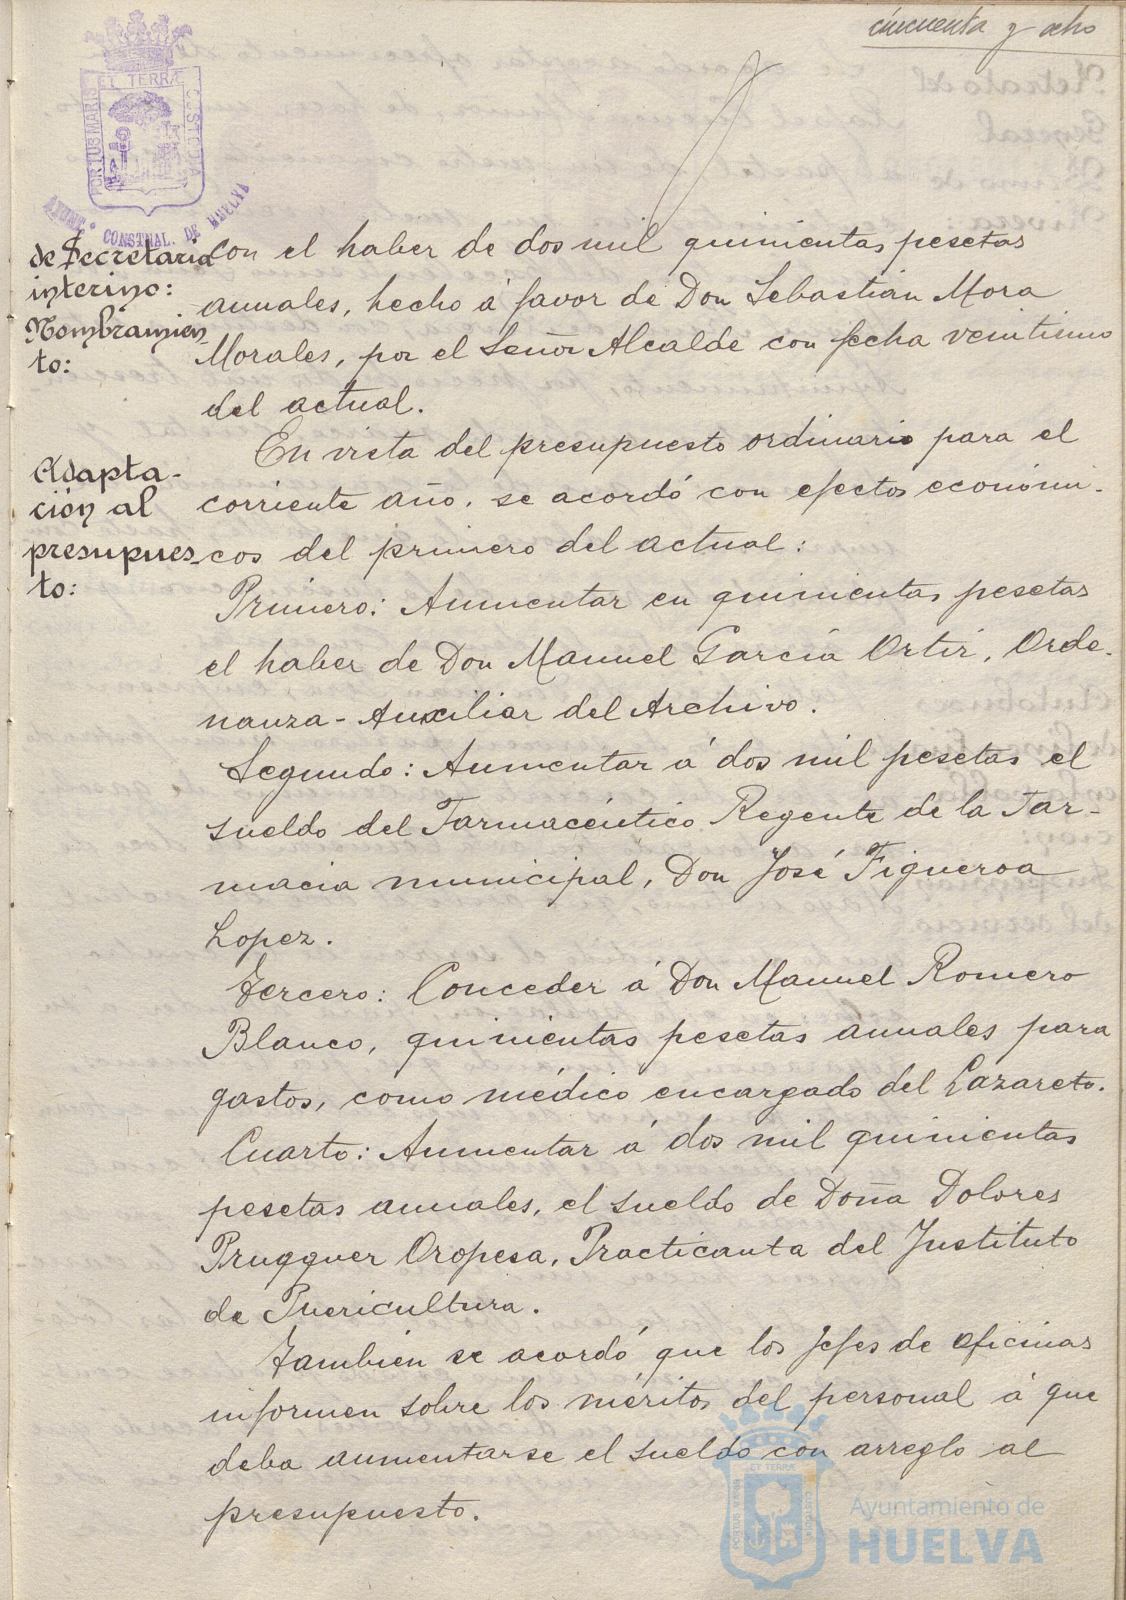 cincuenta y ocho
PORTUS MARIS ET TERRÆ CUSTODIA
AYUNT.º CONSTNAL. DE HUELVA
de Secretaria
interino:
Nombramien
to:
con el haber de dos mil quinientas pesetas
anuales, hecho á favor de Don Sebastián Mora
Morales, por el Señor Alcalde con fecha veintiuno
del actual.
Adapta-
ción al
presupues-
to:
En vista del presupuesto ordinario para el
corriente año, se acordó con efectos económi-
cos del primero del actual:
Primero: Aumentar en quinientas pesetas
el haber de Don Manuel García Ortiz, Orde-
nanza-Auxiliar del Archivo.
Segundo: Aumentar á dos mil pesetas el
sueldo del Farmacéutico Regente de la Far-
macia municipal, Don José Figueroa
Lopez.
Tercero: Conceder á Don Manuel Romero
Blanco, quinientas pesetas anuales para
gastos, como médico encargado del Lazareto.
Cuarto: Aumentar á dos mil quinientas
pesetas anuales, el sueldo de Doña Dolores
Pruqquer Oropesa, Practicanta del Instituto
de Puericultura.
También se acordó que los Jefes de oficinas
informen sobre los méritos del personal á que
deba aumentarse el sueldo con arreglo al
presupuesto.
PORTUS MARIS ET TERRÆ CUSTODIA
Ayuntamiento de
HUELVA